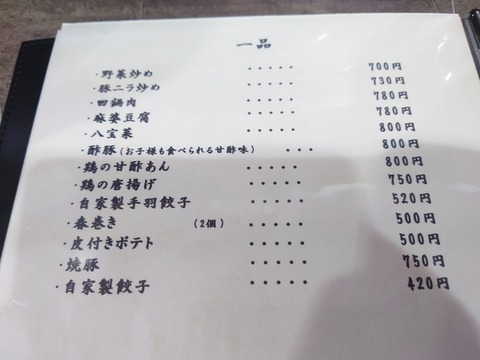 一品
・野菜炒め ・・・・・ 700円
・豚ニラ炒め ・・・・・ 730円
・回鍋肉 ・・・・・ 780円
・麻婆豆腐 ・・・・・ 780円
・八宝菜 ・・・・・ 800円
・酢豚(お子様も食べられる甘酢味) ・・・ 800円
・鶏の甘酢あん ・・・・・ 800円
・鶏の唐揚げ ・・・・・ 750円
・自家製手羽餃子 ・・・・・ 520円
・春巻き (2個) ・・・・・ 500円
・皮付きポテト ・・・・・ 500円
・焼豚 ・・・・・ 750円
・自家製餃子 ・・・・・ 420円